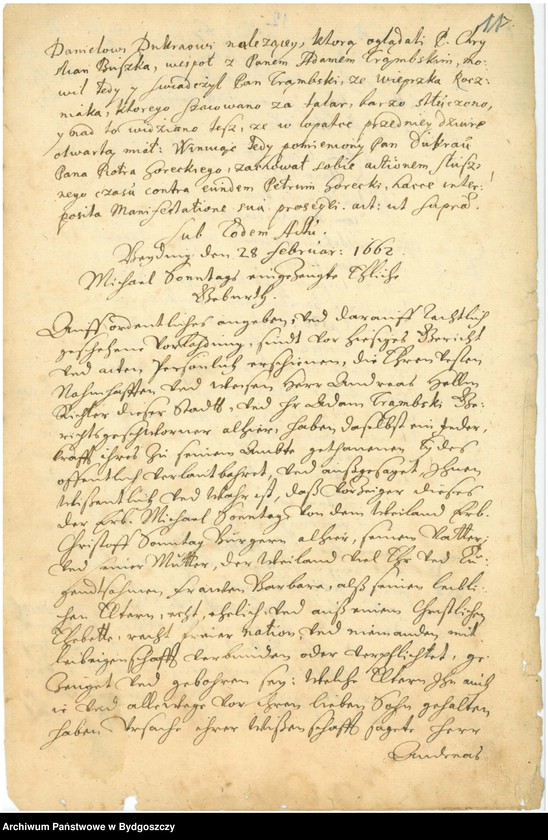 117.
Danielowi Dukraowi należący, ktorą oglądali P. Chry
stian Buszka, wespoł z Panem Adamem Trąmbskim, mo-
wil tedy y swiadczyl Pan Trąmbski, ze wieprzka Rocz-
niaka, ktorego szacowano za talar, barzo stłuczono,
y nad to widziano tesz, ze w łopatce przedniey dziurę
otwartą miał: Winuąie tedy pomieniony Pan Dukrau
Pana Piotra Goreckiego, zachował sobie actionem słusz-
nego czasu contra eundem Petrum Gorecki, hacce inter-
posita Manifestatione sua prosequi. act: ut supra.
Sub Eodem Actu.
den 28 Februar: 1662.
Michael Sonntags eingezeugte Ehliche
Geburth.
Auff ordentliches angeben, und darauff Rechtlich
geschehene Vorladung, sindt vor hiesiges Gericht
und acten Persönlich erschienen, die Ehrenvesten
Nahmhafften und Weisen Herr Andreas Hellm
Richter dieser Stadt, und Hr Adam Trambski Ge-
richtsgeschworner alhier, haben daselbst ein Jeder,
krafft ihres zu seinem Ambte gethanenen Eydes
öffentlich verlautbahret, und außgesaget, Ihnen
wißentlich und wahr ist, daß vorzeiger dieses
der Erb. Michael Sonntag von dem Weiland Erb.
Christoff Sonntag Bürgern alhier, seinem Vatter,
und einer Mutter, der Weiland viel Ehr und Tu-
gendtsahmen Frauen Barbara, alß seinen leibli-
chen Eltern, echt, ehelich, und auß einem Christlichen
Ehebette, recht freier nation und niemanden mit
leibeigenschafft verbunden oder verpflichtet, ge-
zeuget und gebohren sey: Welche Eltern Ihn auch
ie und allewege vor ihren lieben Sohn gehalten
haben. Ursache ihrer Wißenschafft sagete Herr
Andreas
Archiwum Państwowe w Bydgoszczy